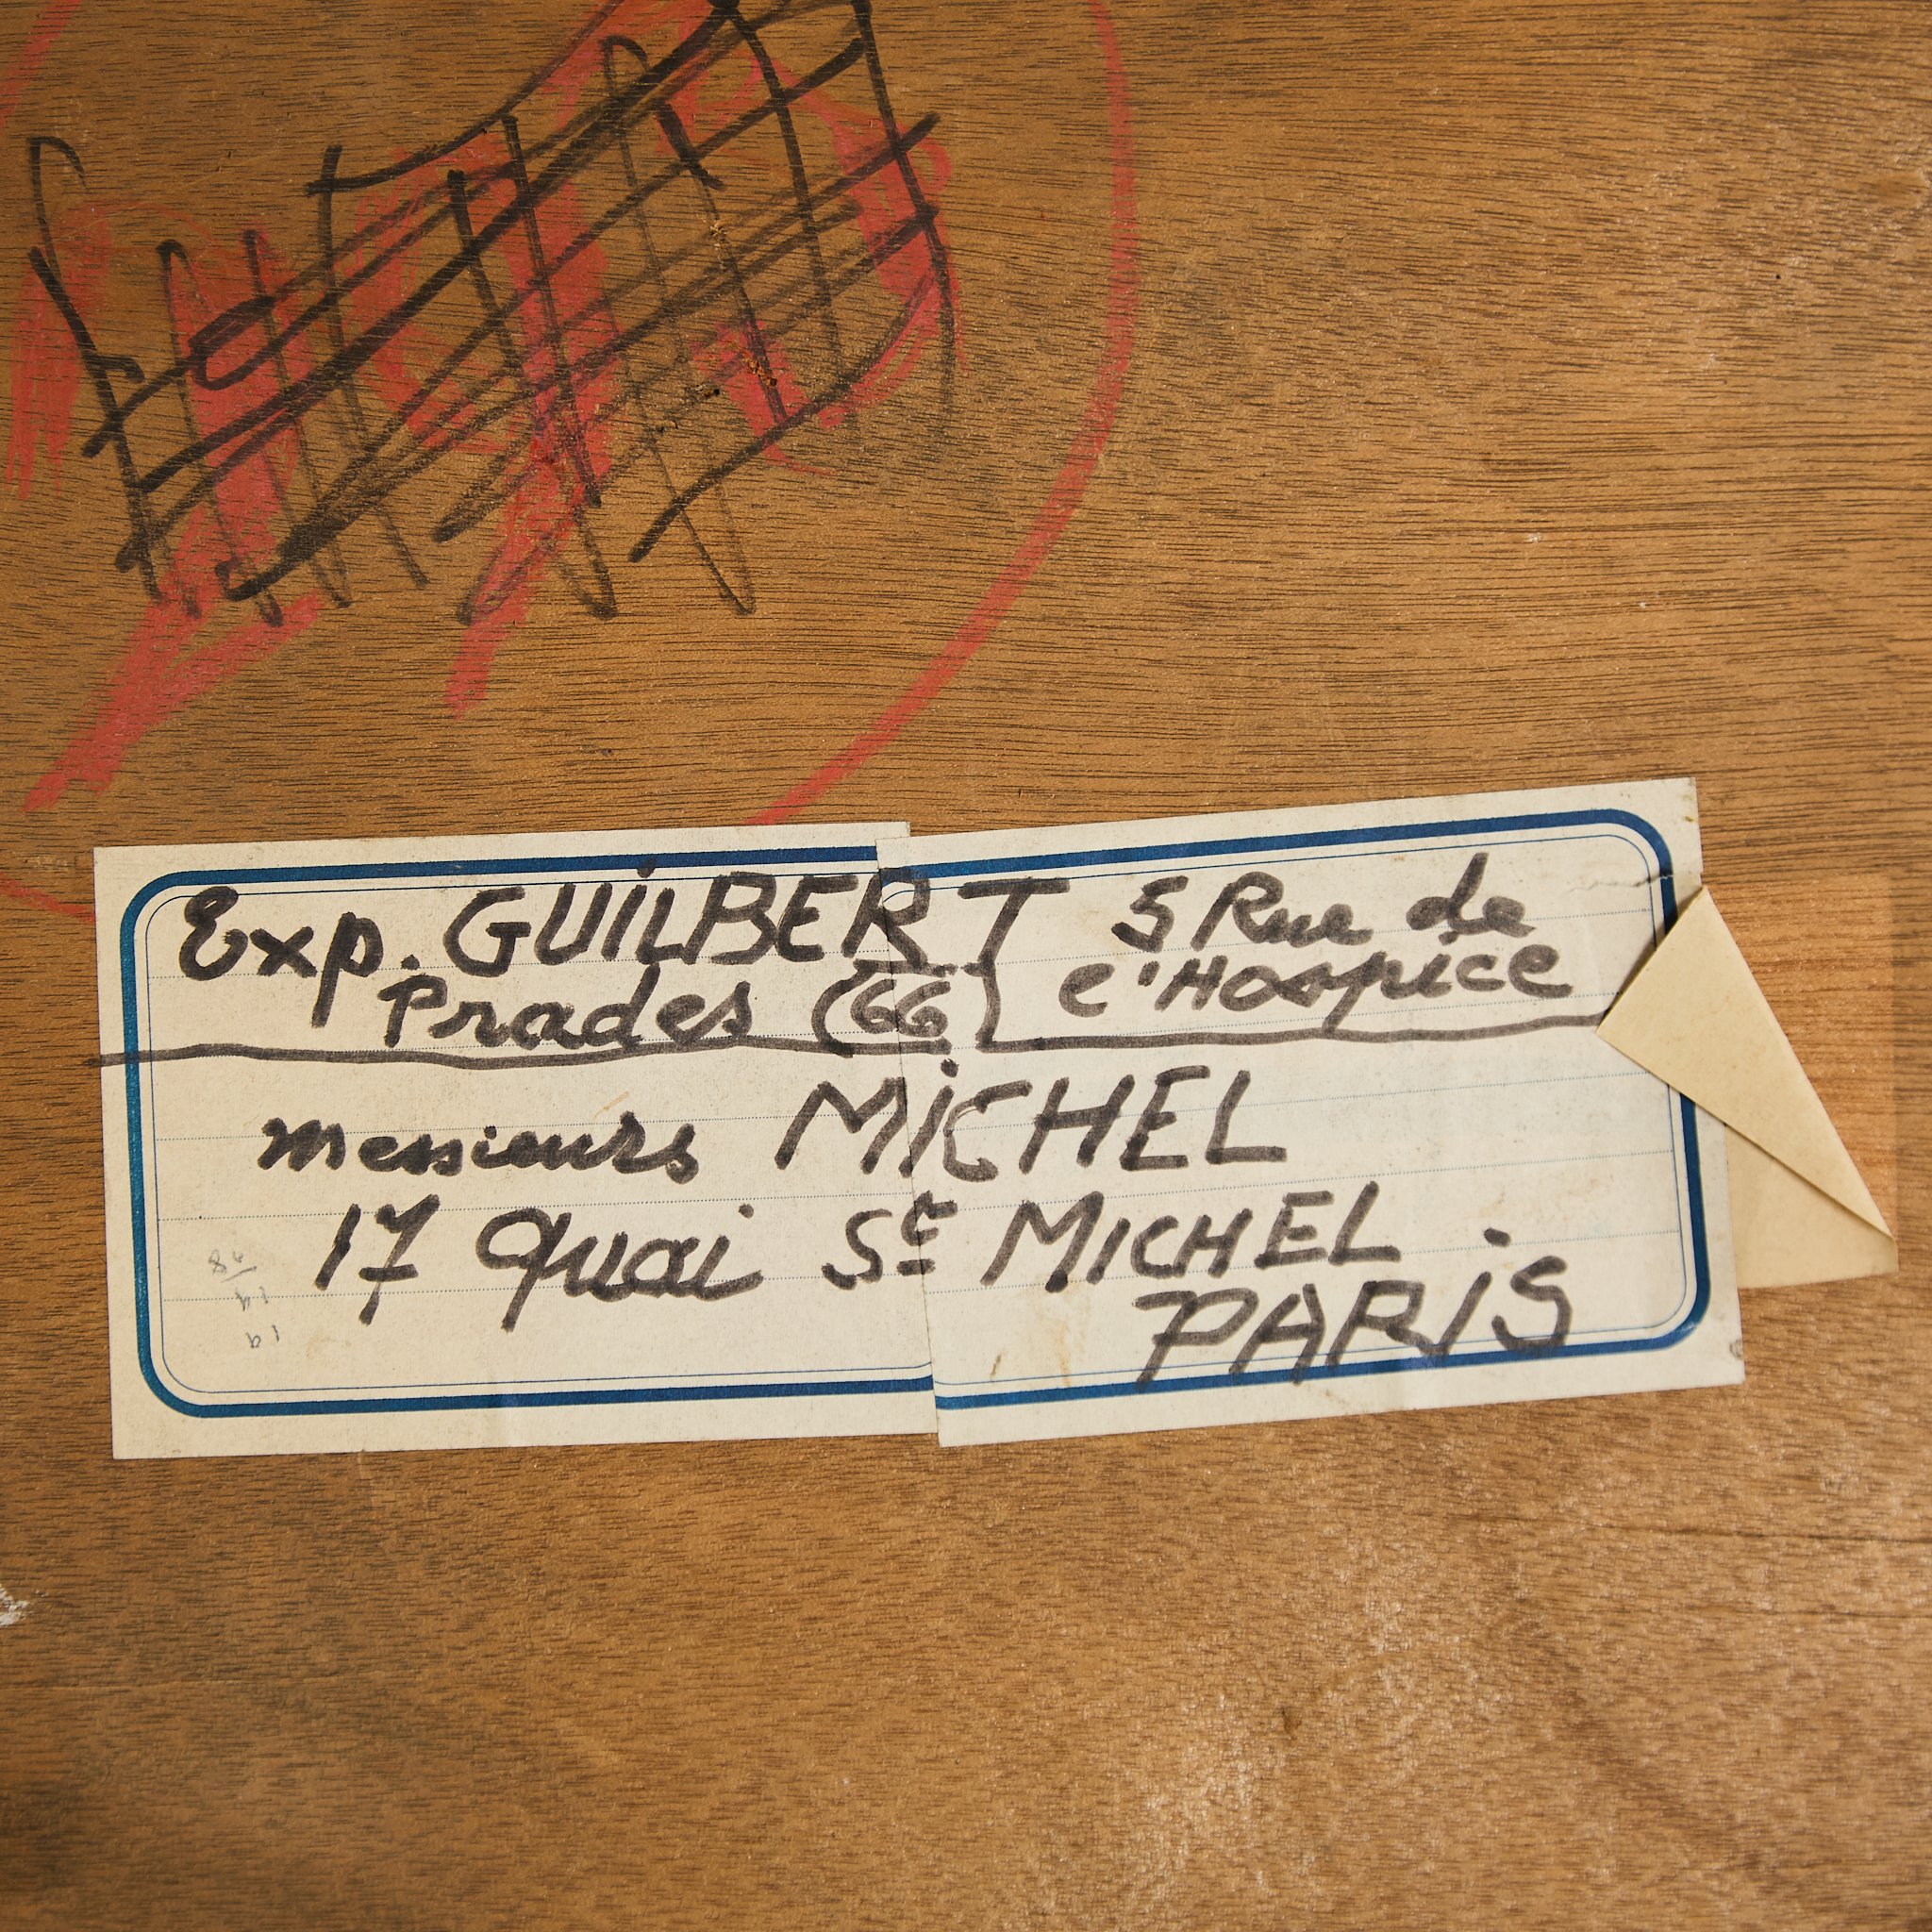 Exp. GUiLBERT 5 Rue de
Prades (66) l'Hospice
messieurs MiCHEL
17 Quai St MICHEL
PARiS